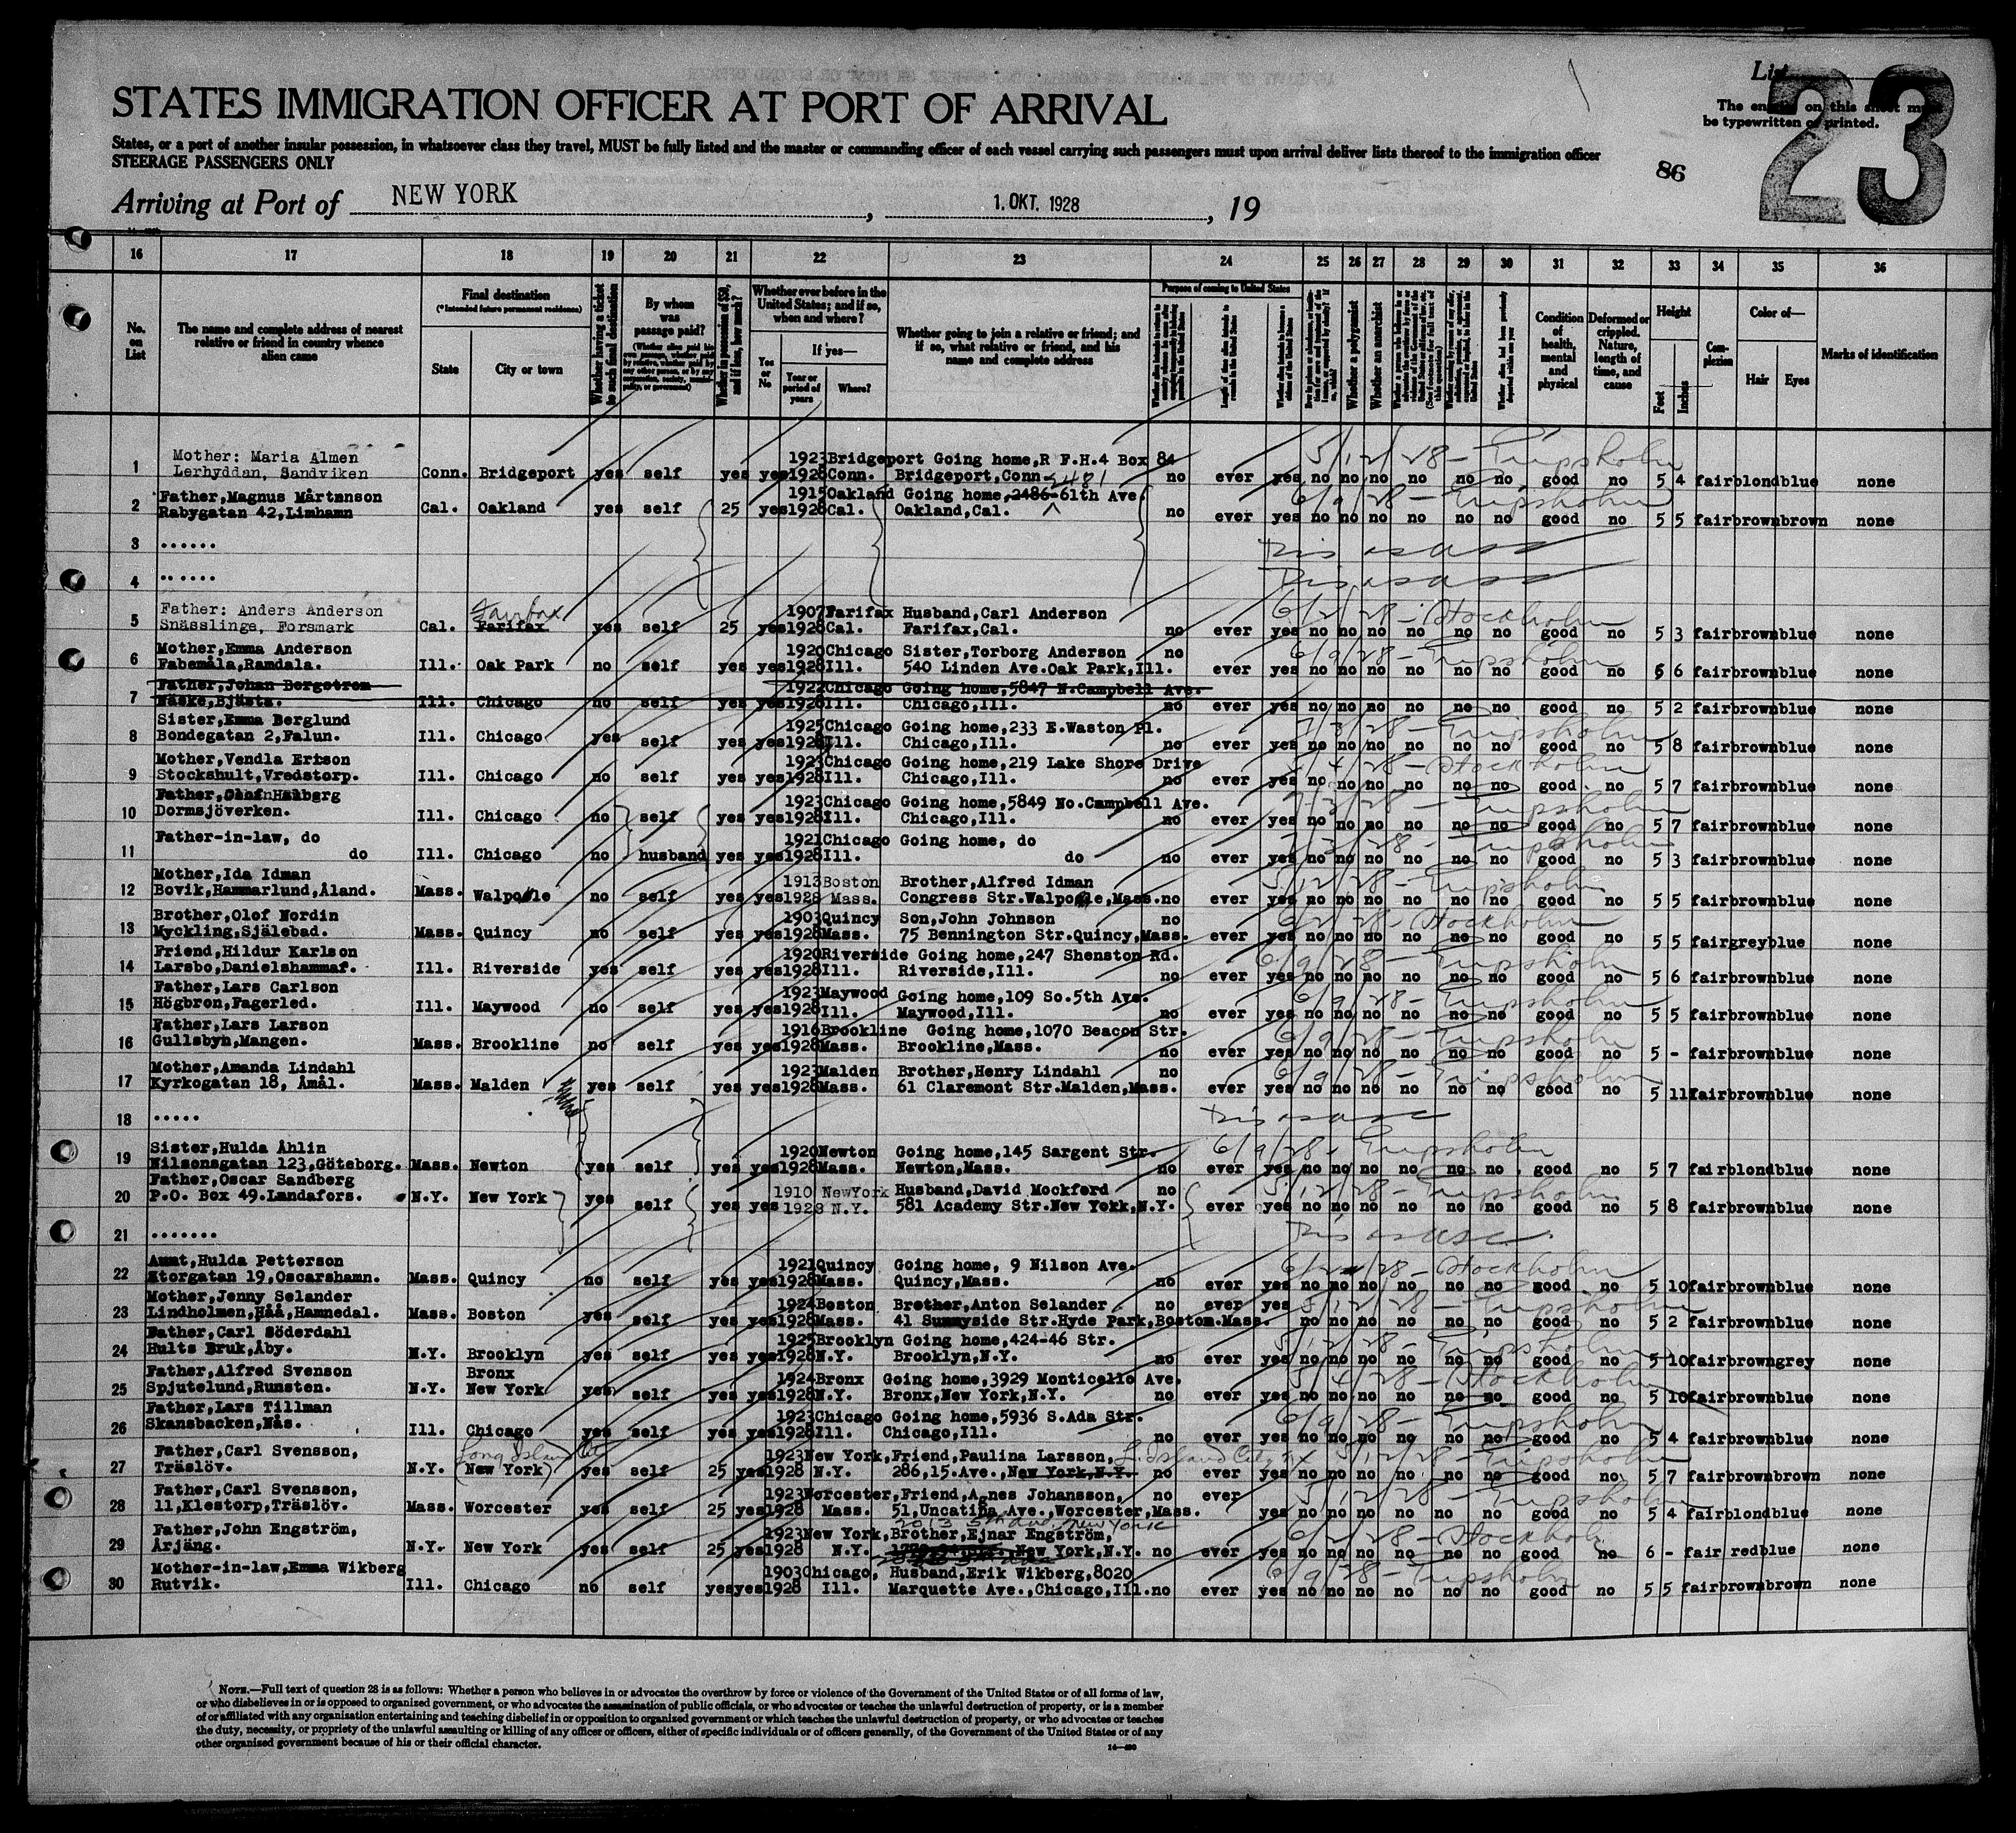 List
23
The entries on this sheet must
be typewritten or printed.
STATES IMMIGRATION OFFICER AT PORT OF ARRIVAL
States, or a port of another insular possession, in whatsoever class they travel, MUST be fully listed and the master or commanding officer of each vessel carrying such passengers must upon arrival deliver lists thereof to the immigration officer
STEERAGE PASSENGERS ONLY
86
Arriving at Port of NEW YORK , 1. OKT. 1928 , 19
16 17 18 19 20 21 22 23 24 25 26 27 28 29 30 31 32 33 34 35 36
No. on List
The name and complete address of nearest relative or friend in country whence alien came
Final destination
(*Intended future permanent residence)
State
City or town
Whether having a ticket to such final destination
By whom was passage paid?
Whether in possession of $50, and if less, how much?
Whether ever before in the United States; and if so, when and where?
Yes or No
If yes—
Year or period of years
Where?
Whether going to join a relative or friend; and if so, what relative or friend, and his name and complete address
Purpose of coming to United States
Whether a polygamist
Whether an anarchist
Condition of health, mental and physical
Deformed or crippled. Nature, length of time, and cause
Height
Feet
Inches
Complexion
Color of—
Hair
Eyes
Marks of identification
1 Mother: Maria Almen 1923 Bridgeport Going home, R F.H.4 Box 84 5/12/28 - Gripsholm
Lerhyddan, Sandviken Conn. Bridgeport yes self yes yes 1928 Conn. Bridgeport, Conn. no ever yes no no no no no no good no 5 4 fair blond blue none
2481
2 Father, Magnus Mårtenson 1915 Oakland Going home, 2486-61th Ave. 6/9/28 - Gripsholm
Rabygatan 42, Limhamn Cal. Oakland yes self 25 yes 1928 Cal. Oakland, Cal. no ever yes no no no no no no good no 5 5 fair brown brown none
3 ......
4 ......
Fairfax
5 Father: Anders Anderson 1907 Farifax Husband, Carl Anderson 6/2/28 - Stockholm
Snässlinge, Forsmark Cal. Farifax yes self 25 yes 1928 Cal. Farifax, Cal. no ever yes no no no no no no good no 5 3 fair brown blue none
6 Mother, Emma Anderson 1920 Chicago Sister, Torborg Anderson no 6/9/28 - Gripsholm
Fabemåla, Ramdala. Ill. Oak Park no self yes yes 1928 Ill. 540 Linden Ave. Oak Park, Ill. ever yes no no no no no no good no 5 6 fair brown blue none
7 Father, Johan Bergstrom 1922 Chicago Going home, 5847 N. Campbell Ave.
Näske, Bjästa. Ill. Chicago no self yes yes 1928 Ill. Chicago, Ill. no ever yes no no no no no no good no 5 2 fair brown blue none
8 Sister, Emma Berglund 1925 Chicago Going home, 233 E. Waston Pl. 7/3/28 - Gripsholm
Bondegatan 2, Falun. Ill. Chicago yes self yes yes 1928 Ill. Chicago, Ill. no ever yes no no no no no no good no 5 8 fair brown blue none
9 Mother, Vendla Erison 1923 Chicago Going home, 219 Lake Shore Drive 5/4/28 - Stockholm
Stockshult, Vredstorp. Ill. Chicago no self yes yes 1928 Ill. Chicago, Ill. no ever yes no no no no no no good no 5 7 fair brown blue none
10 Father, Olof Halberg 1923 Chicago Going home, 5849 No. Campbell Ave. 7/3/28 - Gripsholm
Dormsjöverken. Ill. Chicago no self yes yes 1928 Ill. Chicago, Ill. no ever yes no no no no no no good no 5 7 fair brown blue none
11 Father-in-law, do 1921 Chicago Going home, do 7/3/28 - Gripsholm
do Ill. Chicago no husband yes yes 1928 Ill. do no ever yes no no no no no no good no 5 3 fair brown blue none
12 Mother, Ida Idman 1913 Boston Brother, Alfred Idman 5/12/28 - Gripsholm
Bovik, Hammarlund, Åland. Mass. Walpole no self yes yes 1928 Mass. Congress Str. Walpole, Mass. no ever yes no no no no no no good no 5 5 fair brown blue none
13 Brother, Olof Nordin 1903 Quincy Son, John Johnson no 6/2/28 - Stockholm
Myckling, Själebad. Mass. Quincy no self yes yes 1928 Mass. 75 Bennington Str. Quincy, Mass. ever yes no no no no no no good no 5 5 fair grey blue none
14 Friend, Hildur Karlson 1920 Riverside Going home, 247 Shenston Rd. 6/9/28 - Gripsholm
Larsbo, Danielshammar. Ill. Riverside yes self yes yes 1928 Ill. Riverside, Ill. no ever yes no no no no no no good no 5 6 fair brown blue none
15 Father, Lars Carlson 1923 Maywood Going home, 109 So. 5th Ave. 6/9/28 - Gripsholm
Högbron, Fagerled. Ill. Maywood no self yes yes 1928 Ill. Maywood, Ill. no ever yes no no no no no no good no 5 5 fair brown blue none
16 Father, Lars Larson 1916 Brookline Going home, 1070 Beacon Str. 6/9/28 - Gripsholm
Gullsbyn, Mangen. Mass. Brookline no self yes yes 1928 Mass. Brookline, Mass. no ever yes no no no no no no good no 5 - fair brown blue none
17 Mother, Amanda Lindahl 1923 Malden Brother, Henry Lindahl no 6/9/28 - Gripsholm
Kyrkogatan 18, Åmål. Mass. Malden yes self yes yes 1928 Mass. 61 Claremont Str. Malden, Mass. ever yes no no no no no no good no 5 11 fair brown blue none
18 .....
19 Sister, Hulda Åhlin 1920 Newton Going home, 145 Sargent Str. 6/9/28 - Gripsholm
Nilsonsgatan 123, Göteborg. Mass. Newton yes self yes yes 1928 Mass. Newton, Mass. no ever yes no no no no no no good no 5 7 fair blond blue none
20 Father, Oscar Sandberg 1910 New York Husband, David Mockford no 5/12/28 - Gripsholm
P.O. Box 49. Landafors. N.Y. New York yes self yes yes 1928 N.Y. 581 Academy Str. New York, N.Y. ever yes no no no no no no good no 5 8 fair brown blue none
21 .......
22 Aunt, Hulda Petterson 1921 Quincy Going home, 9 Nilson Ave. 6/2/28 - Stockholm
Storgatan 19, Oscarshamn. Mass. Quincy no self yes yes 1928 Mass. Quincy, Mass. no ever yes no no no no no no good no 5 10 fair brown blue none
23 Mother, Jenny Selander 1924 Boston Brother, Anton Selander no ever yes 5/12/28 - Gripsholm
Lindholmen, Håå, Hamnedal. Mass. Boston yes self yes yes 1928 Mass. 41 Sunnyside Str. Hyde Park, Boston. Mass. no no no no no no good no 5 2 fair brown blue none
24 Father, Carl Söderdahl 1925 Brooklyn Going home, 424-46 Str. 5/12/28 - Gripsholm
Hults Bruk, Åby. N.Y. Brooklyn yes self yes yes 1928 N.Y. Brooklyn, N.Y. no ever yes no no no no no no good no 5 10 fair brown grey none
25 Father, Alfred Svenson Bronx 1924 Bronx Going home, 3929 Monticello Ave. 5/4/28 - Stockholm
Spjutelund, Runsten. N.Y. New York yes self yes yes 1928 N.Y. Bronx, New York, N.Y. no ever yes no no no no no no good no 5 10 fair brown blue none
26 Father, Lars Tillman 1923 Chicago Going home, 5936 S. Ada Str. 6/9/28 - Gripsholm
Skansbacken, Nås. Ill. Chicago yes self yes yes 1928 Ill. Chicago, Ill. no ever yes no no no no no no good no 5 4 fair brown blue none
27 Father, Carl Svensson, Long Island City 1923 New York, Friend, Paulina Larsson, L. Island City, N.Y. 5/12/28 - Gripsholm
Träslöv. N.Y. (New York) yes self 25 yes 1928 N.Y. 286, 15. Ave., New York, N.Y. no ever yes no no no no no no good no 5 7 fair brown brown none
28 Father, Carl Svensson, 1923 Worcester, Friend, Agnes Johansson, no ever 5/12/28 - Gripsholm
11, Klestorp, Träslöv. Mass. Worcester yes self 25 yes 1928 Mass. 51, Uncatina Ave., Worcester, Mass. yes no no no no no no good no 5 4 fair blond blue none
2013 5th Ave, New York
29 Father, John Engström, 1923 New York, Brother, Ejnar Engström, 6/2/28 - Stockholm
Årjäng. N.Y. New York yes self 25 yes 1928 N.Y. New York, N.Y. no ever yes no no no no no no good no 6 - fair red blue none
30 Mother-in-law, Emma Wikberg 1903 Chicago, Husband, Erik Wikberg, 8020 6/9/28 - Gripsholm
Rutvik. Ill. Chicago no self yes yes 1928 Ill. Marquette Ave., Chicago, Ill. no ever yes no no no no no no good no 5 5 fair brown brown none
NOTE.—Full text of question 28 is as follows: Whether a person who believes in or advocates the overthrow by force or violence of the Government of the United States or of all forms of law,
or who disbelieves in or is opposed to organized government, or who advocates the assassination of public officials, or who advocates or teaches the unlawful destruction of property, or is a member
of or affiliated with any organization entertaining and teaching disbelief in or opposition to organized government or which teaches the unlawful destruction of property, or who advocates or teaches
the duty, necessity, or propriety of the unlawful assaulting or killing of any officer or officers, either of specific individuals or of officers generally, of the Government of the United States or of any
other organized government because of his or their official character.